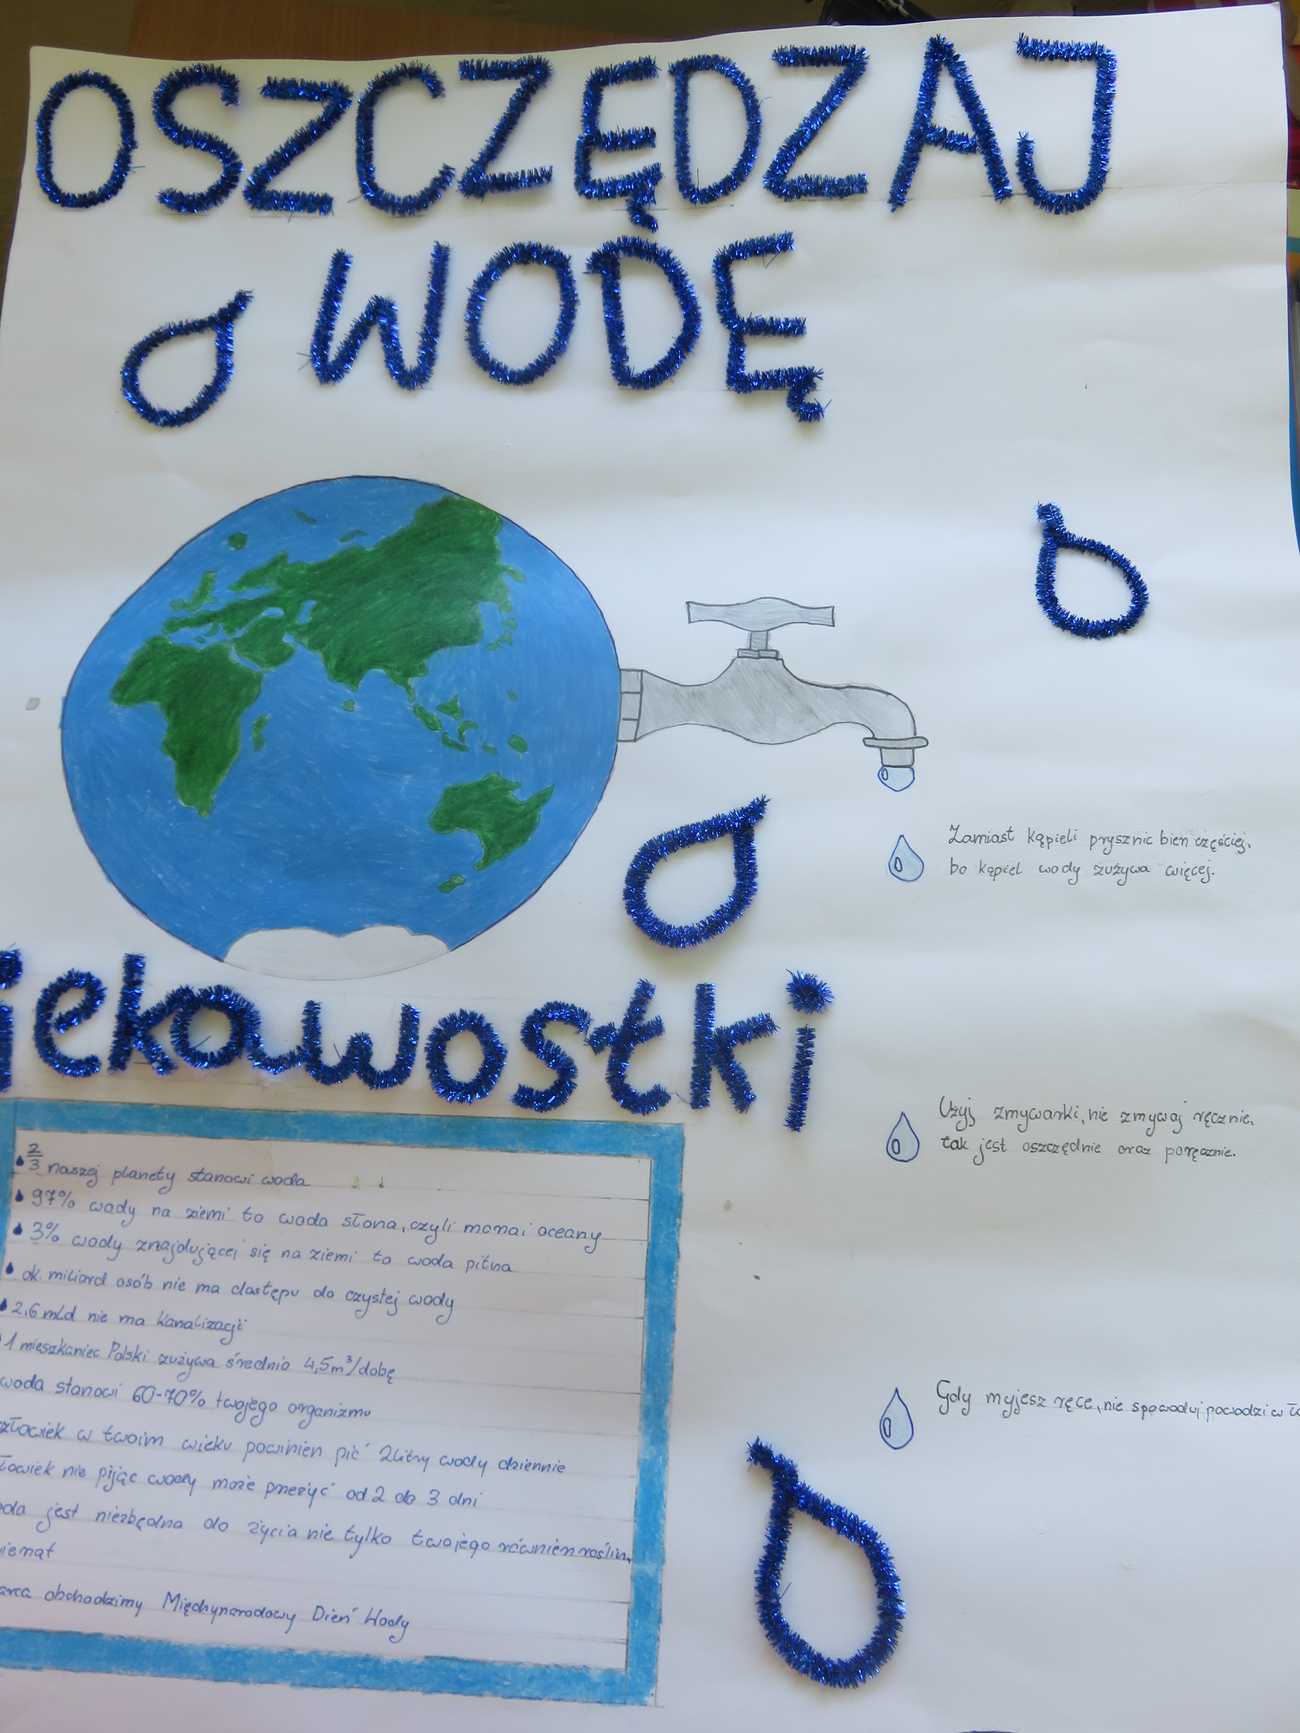 OSZCZĘDZAJ
WODĘ
Zamiast kąpieli prysznic bierz częściej,
bo kąpiel wody zużywa więcej.
iekawostki
Użyj zmywarki, nie zmywaj ręcznie,
tak jest oszczędnie oraz poręcznie.
2/3 naszej planety stanowi woda
97% wody na ziemi to woda słona, czyli morza i oceany
3% wody znajdującej się na ziemi to woda pitna
ok. miliard osób nie ma dostępu do czystej wody
2,6 mld nie ma kanalizacji
1 mieszkaniec Polski zużywa średnio 4,5m³/dobę
woda stanowi 60-70% twojego organizmu
złowiek w twoim wieku powinien pić 2litry wody dziennie
łowiek nie pijąc wody może przeżyć od 2 do 3 dni
oda jest niezbędna do życia nie tylko twojego również roślin,
wierząt
arca obchodzimy Międzynarodowy Dzień Wody
Gdy myjesz ręce, nie spowoduj powodzi w